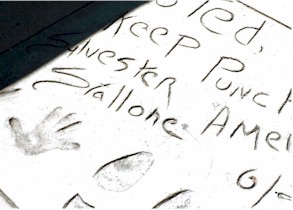 Keep Punch
Sylvester
Stallone Amer
6/